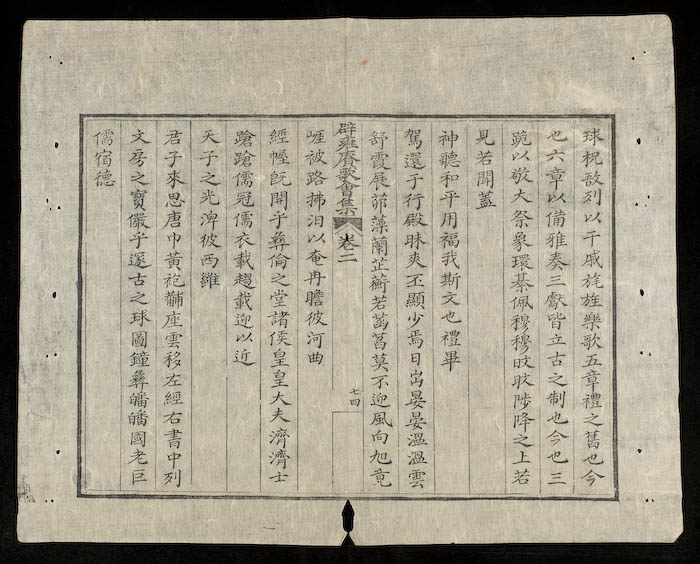 球柷敔列以干戚旄旌樂歌五章禮之舊也今
也六章以備雅奏三獻皆立古之制也今也三
跪以敬大祭象環綦佩穆穆旼旼陟降之上若
見若聞蓋
神聽和平用福我斯文也禮畢
駕還于行殿昧爽丕顯少焉日出晏晏溫溫雲
舒霞展茆藻蘭芷蘅若菡萏莫不迎風向旭竟
辟雍賡歌會集 卷二 七四
崕被路拂汨以奄冉瞻彼河曲
經幄旣開乎彝倫之堂諸侯皇皇大夫濟濟士
蹌蹌儒冠儒衣載趨載迎以近
天子之光渒彼西雝
君子來思唐巾黃袍黼座雲移左經右書中列
文房之寶儼乎邃古之球圖鐘彝皤皤國老巨
儒宿德